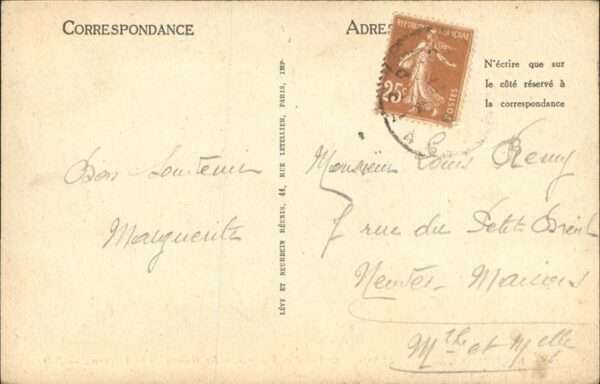 CORRESPONDANCE
Bon Souvenir
Marguerite
LÉVY ET NEURDEIN RÉUNIS, 44, RUE LETELLIER, PARIS, IMP.
ADRES
REPUBLIQUE FRANÇAISE
25c
POSTES
N'écrire que sur
le côté réservé à
la correspondance
Monsieur Louis Remy
7 rue du Petit
Neuves-Maisons
Mthe et Mlle